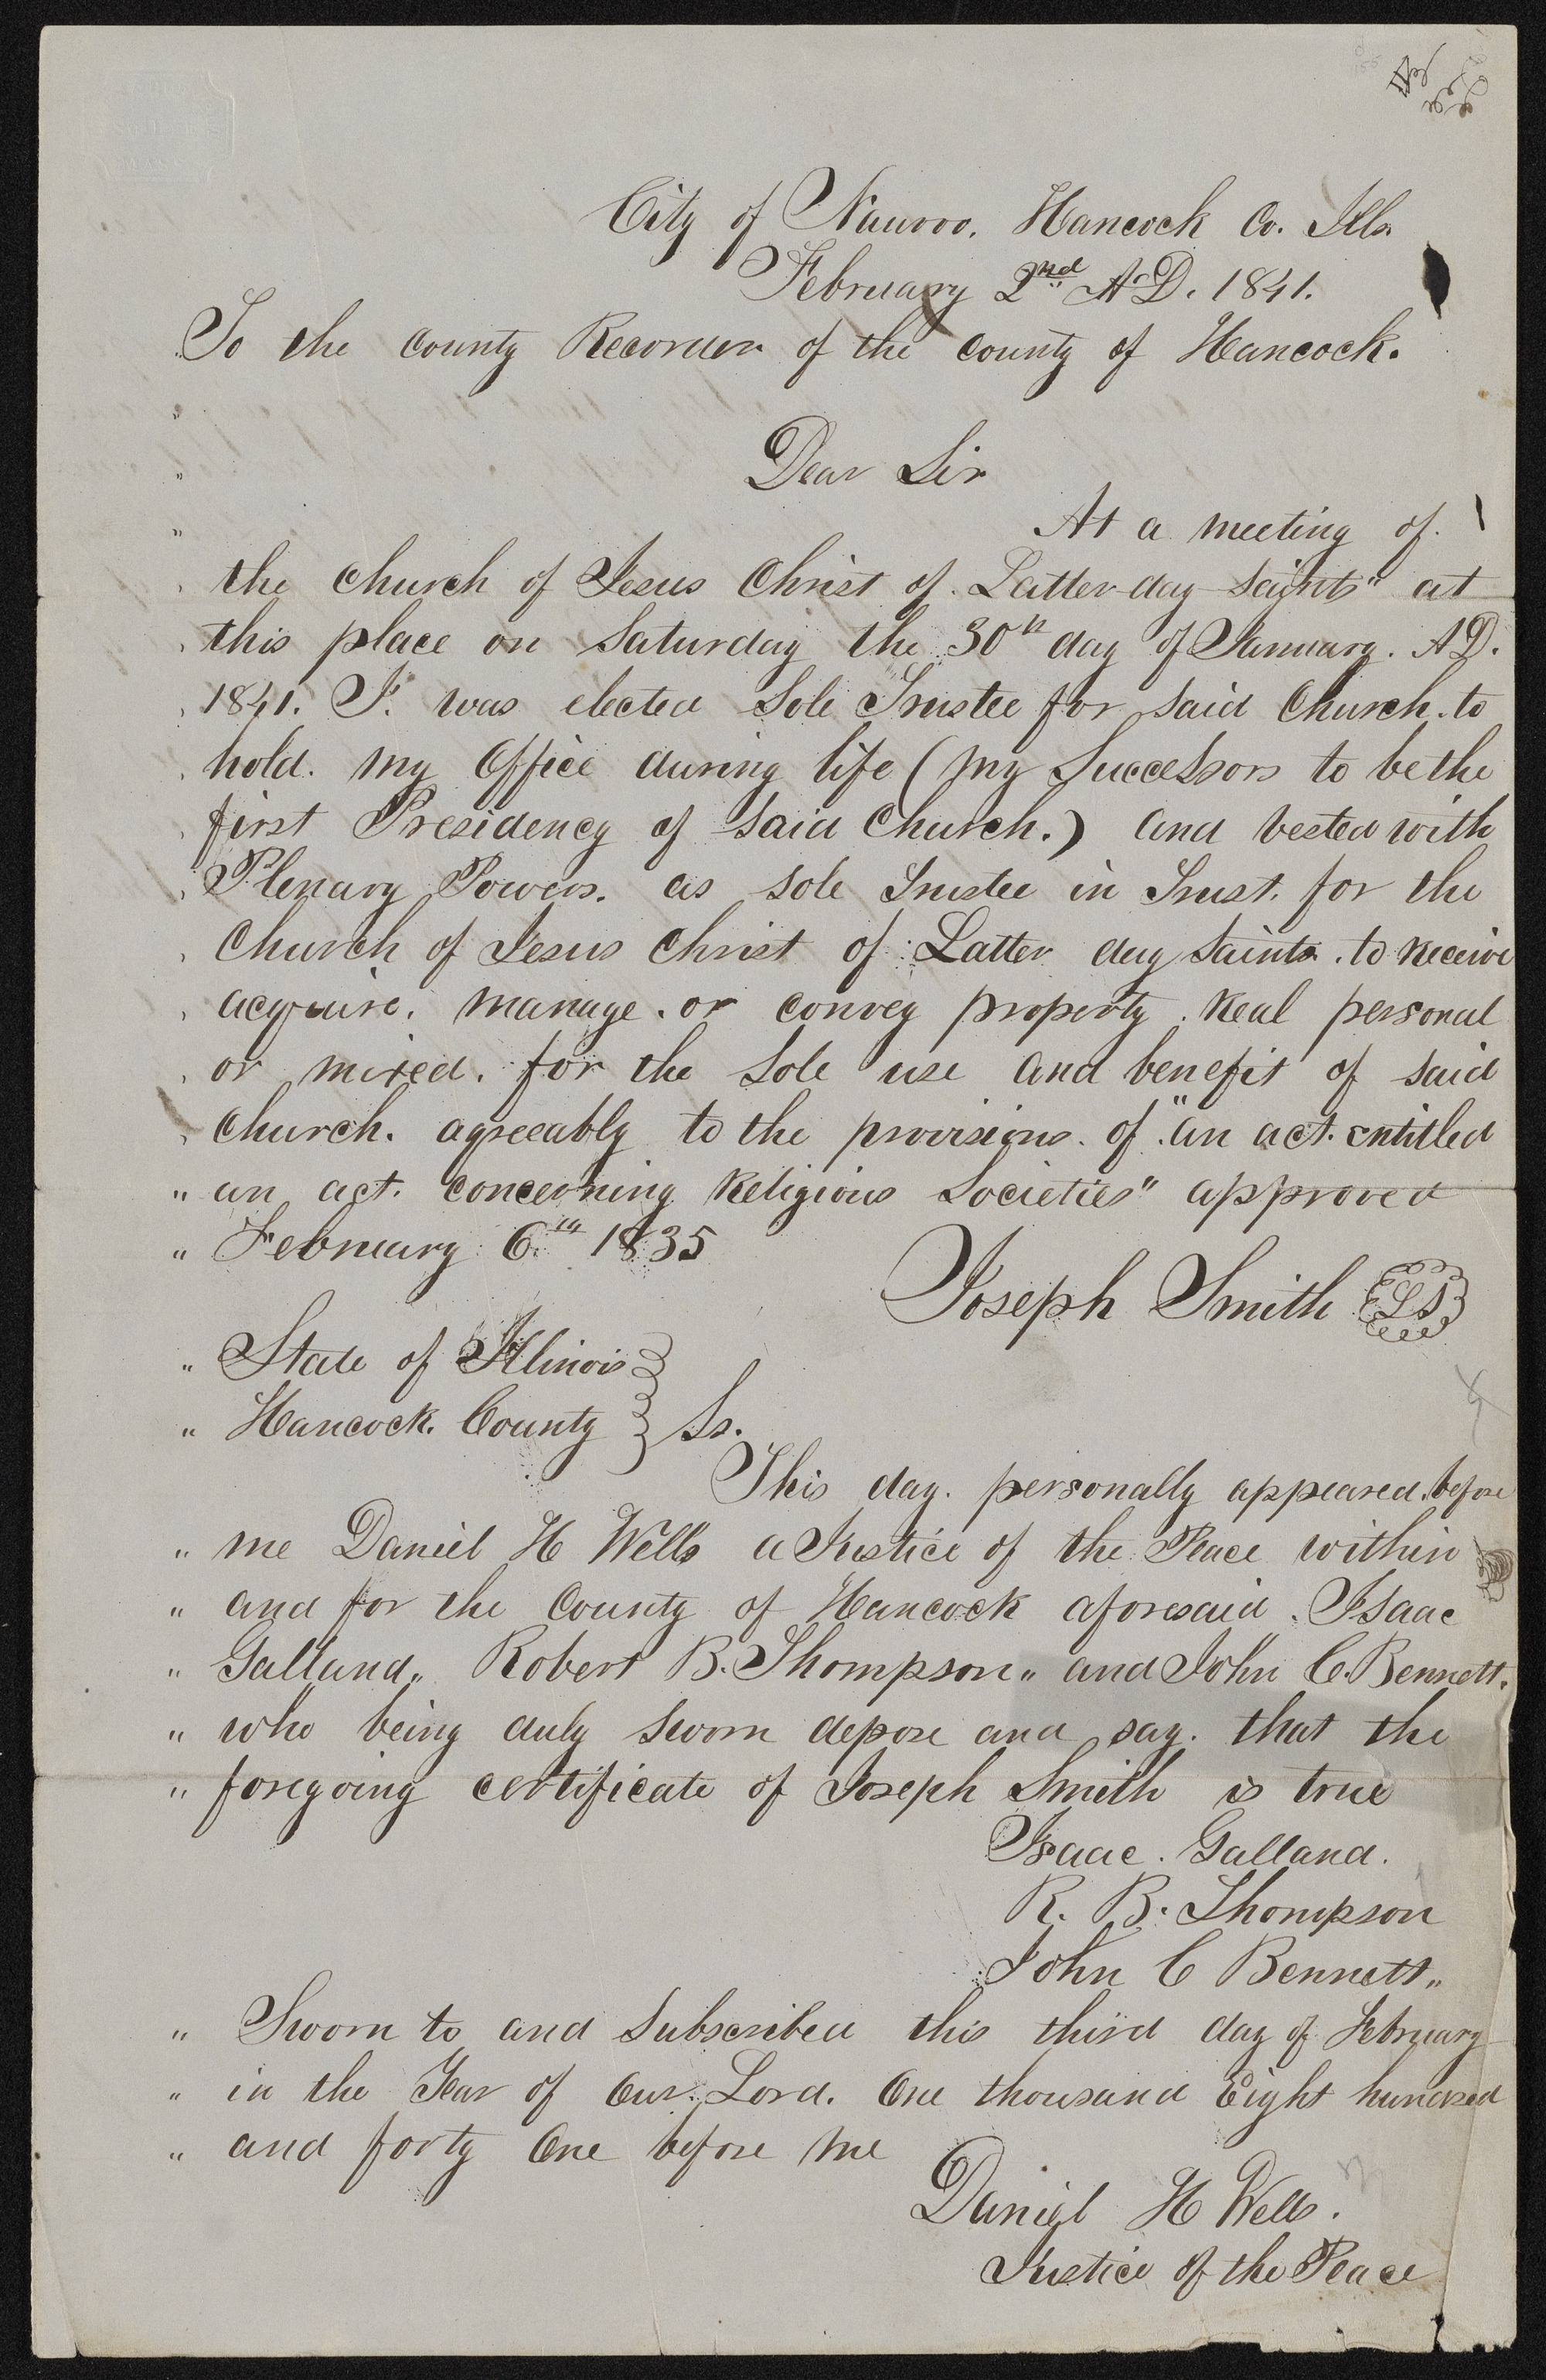 City of Nauvoo. Hancock Co. Ills.
February 2nd A.D. 1841.
To the County Recorder of the County of Hancock.
Dear Sir
At a meeting of
the Church of Jesus Christ of Latter-day Saints" at
this place on Saturday the 30th day of January. A.D.
1841. I. was elected Sole Trustee for said Church. to
hold. my Office during life (my Successors to be the
first Presidency of said Church.) and vested with
Plenary Powers. as sole Trustee in Trust. for the
Church of Jesus Christ of Latter day Saints. to receive
acquire. manage. or convey property. real personal
or mixed. for the sole use and benefit of said
Church. agreeably to the provisions. of "an act. entitled
" an act. concerning Religious Societies" approved
" February 6th 1835
Joseph Smith LS
" State of Illinois
" Hancock. County } Ss.
This day. personally appeared. before
" me Daniel H Wells a Justice of the Peace within
" and for the County of Hancock aforesaid. Isaac
" Galland" Robert B. Thompson" and John C. Bennett.
" who being duly sworn depose and say. that the
" foregoing certificate of Joseph Smith is true
Isaac. Galland.
R. B. Thompson
John C Bennett"
" Sworn to and Subscribed this third day of February
" in the Year of Our Lord. One thousand Eight hundred
" and forty One before me
Daniel H Wells.
Justice of the Peace